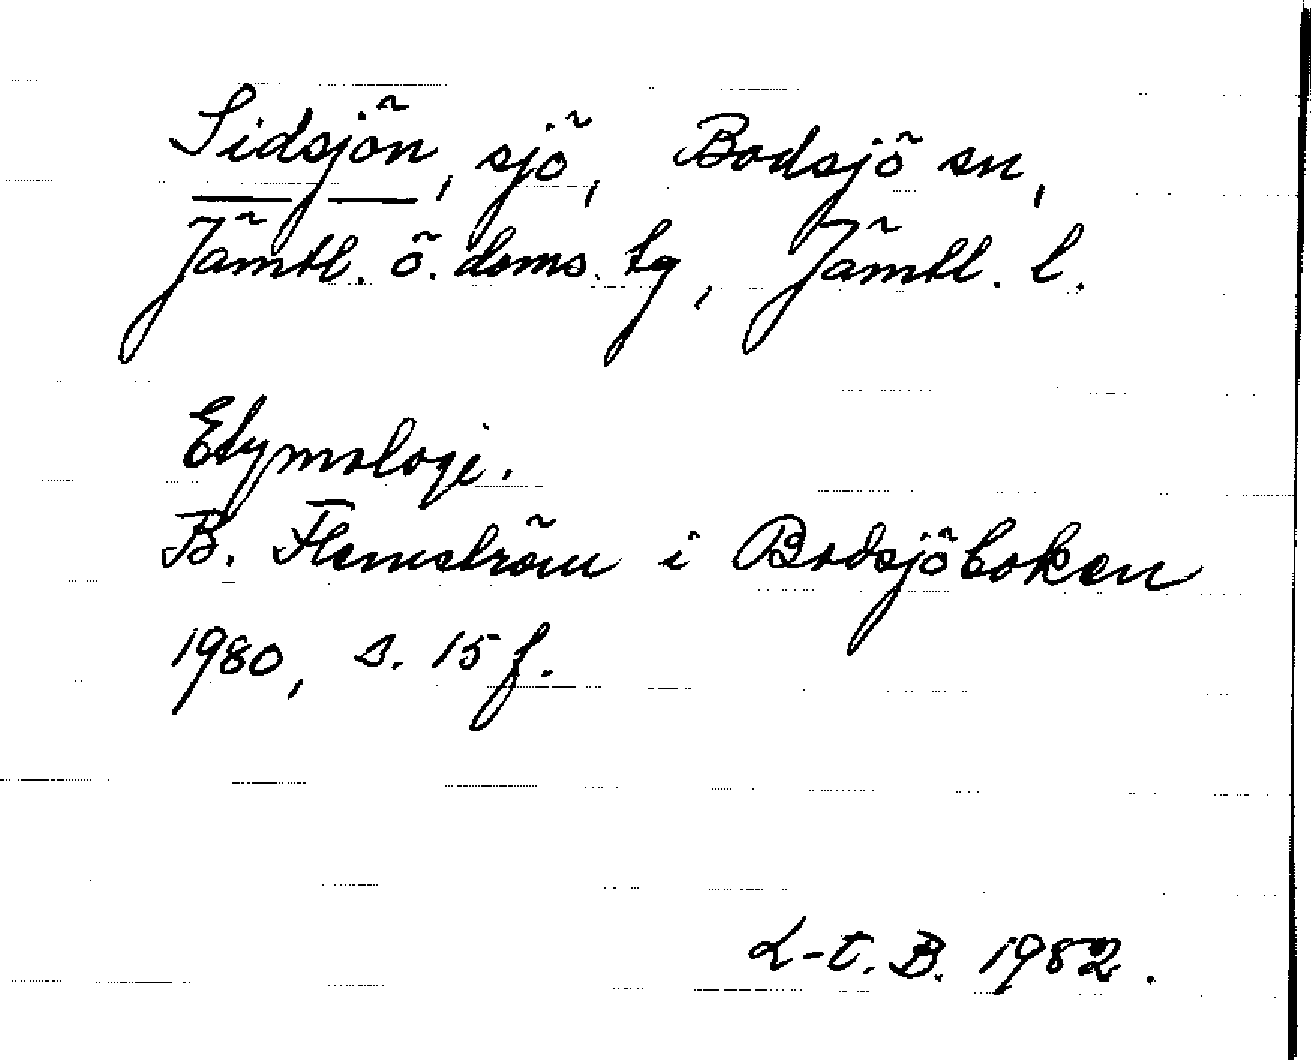 Sidsjön, sjö, Bodsjö sn,
Jämtl. ö. doms. tg, Jämtl. l.
Etymologi.
B. Flemström i Bodsjöboken
1980, s. 15 f.
L-t. B. 1982.